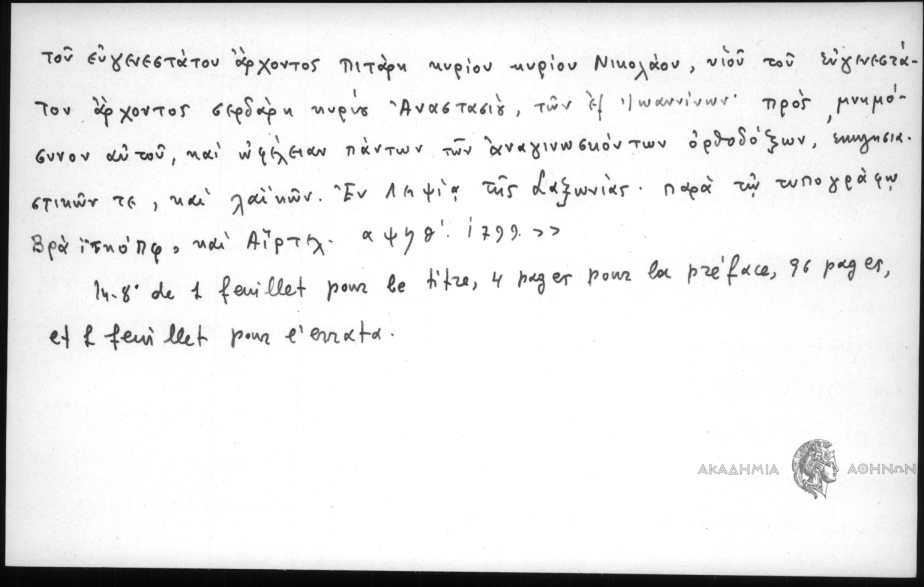 τοῦ εὐγενεστάτου ἄρχοντος πιτάρη κυρίου κυρίου Νικολάου, υἱοῦ τοῦ εὐγενεστά-
του ἄρχοντος σερδάρη κυρίȣ Ἀναστασίȣ, τῶν ἐξ Ἰωαννίνων· πρὸς μνημό-
συνον αὐτοῦ, καὶ ὠφέλειαν πάντων τῶν ἀναγινωσκόντων ὀρθοδόξων, ἐκκλησια-
στικῶν τε, καὶ λαϊκῶν. Ἐν Λειψίᾳ τῆς Σαξωνίας. παρὰ τῷ τυπογράφῳ
Βράϊτκόπφ, καὶ Αἵρτελ. αψϟθ΄. 1799. >>
In-8° de 1 feuillet pour le titre, 4 pages pour la préface, 96 pages,
et 1 feuillet pour l'errata.
ΑΚΑΔΗΜΙΑ ΑΘΗΝΩΝ